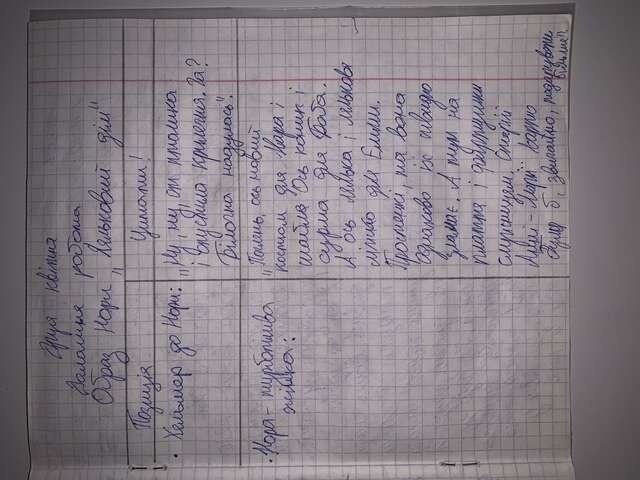 Друге квітня
Домашня робота
Образ Нори „Ляльковий дім"
Позиція Цитати!
• Хельмер до Нори: „Ну, ну, от пташка
і опустила крильця. Га?
Білочка надулась".
• Нора - турботлива „Глянь, ось новий
жінка: костюм для Івара і
шабля. Ось коник і
сурма для Боба.
А ось лялька і лялькове
ліжко для Еммі.
та вона
однаково їх швидко
зламає. А тут на
плаття і фартушки
служницям. Старій
Анні - Марії варто
було б, звичайно, подарувати
більше"